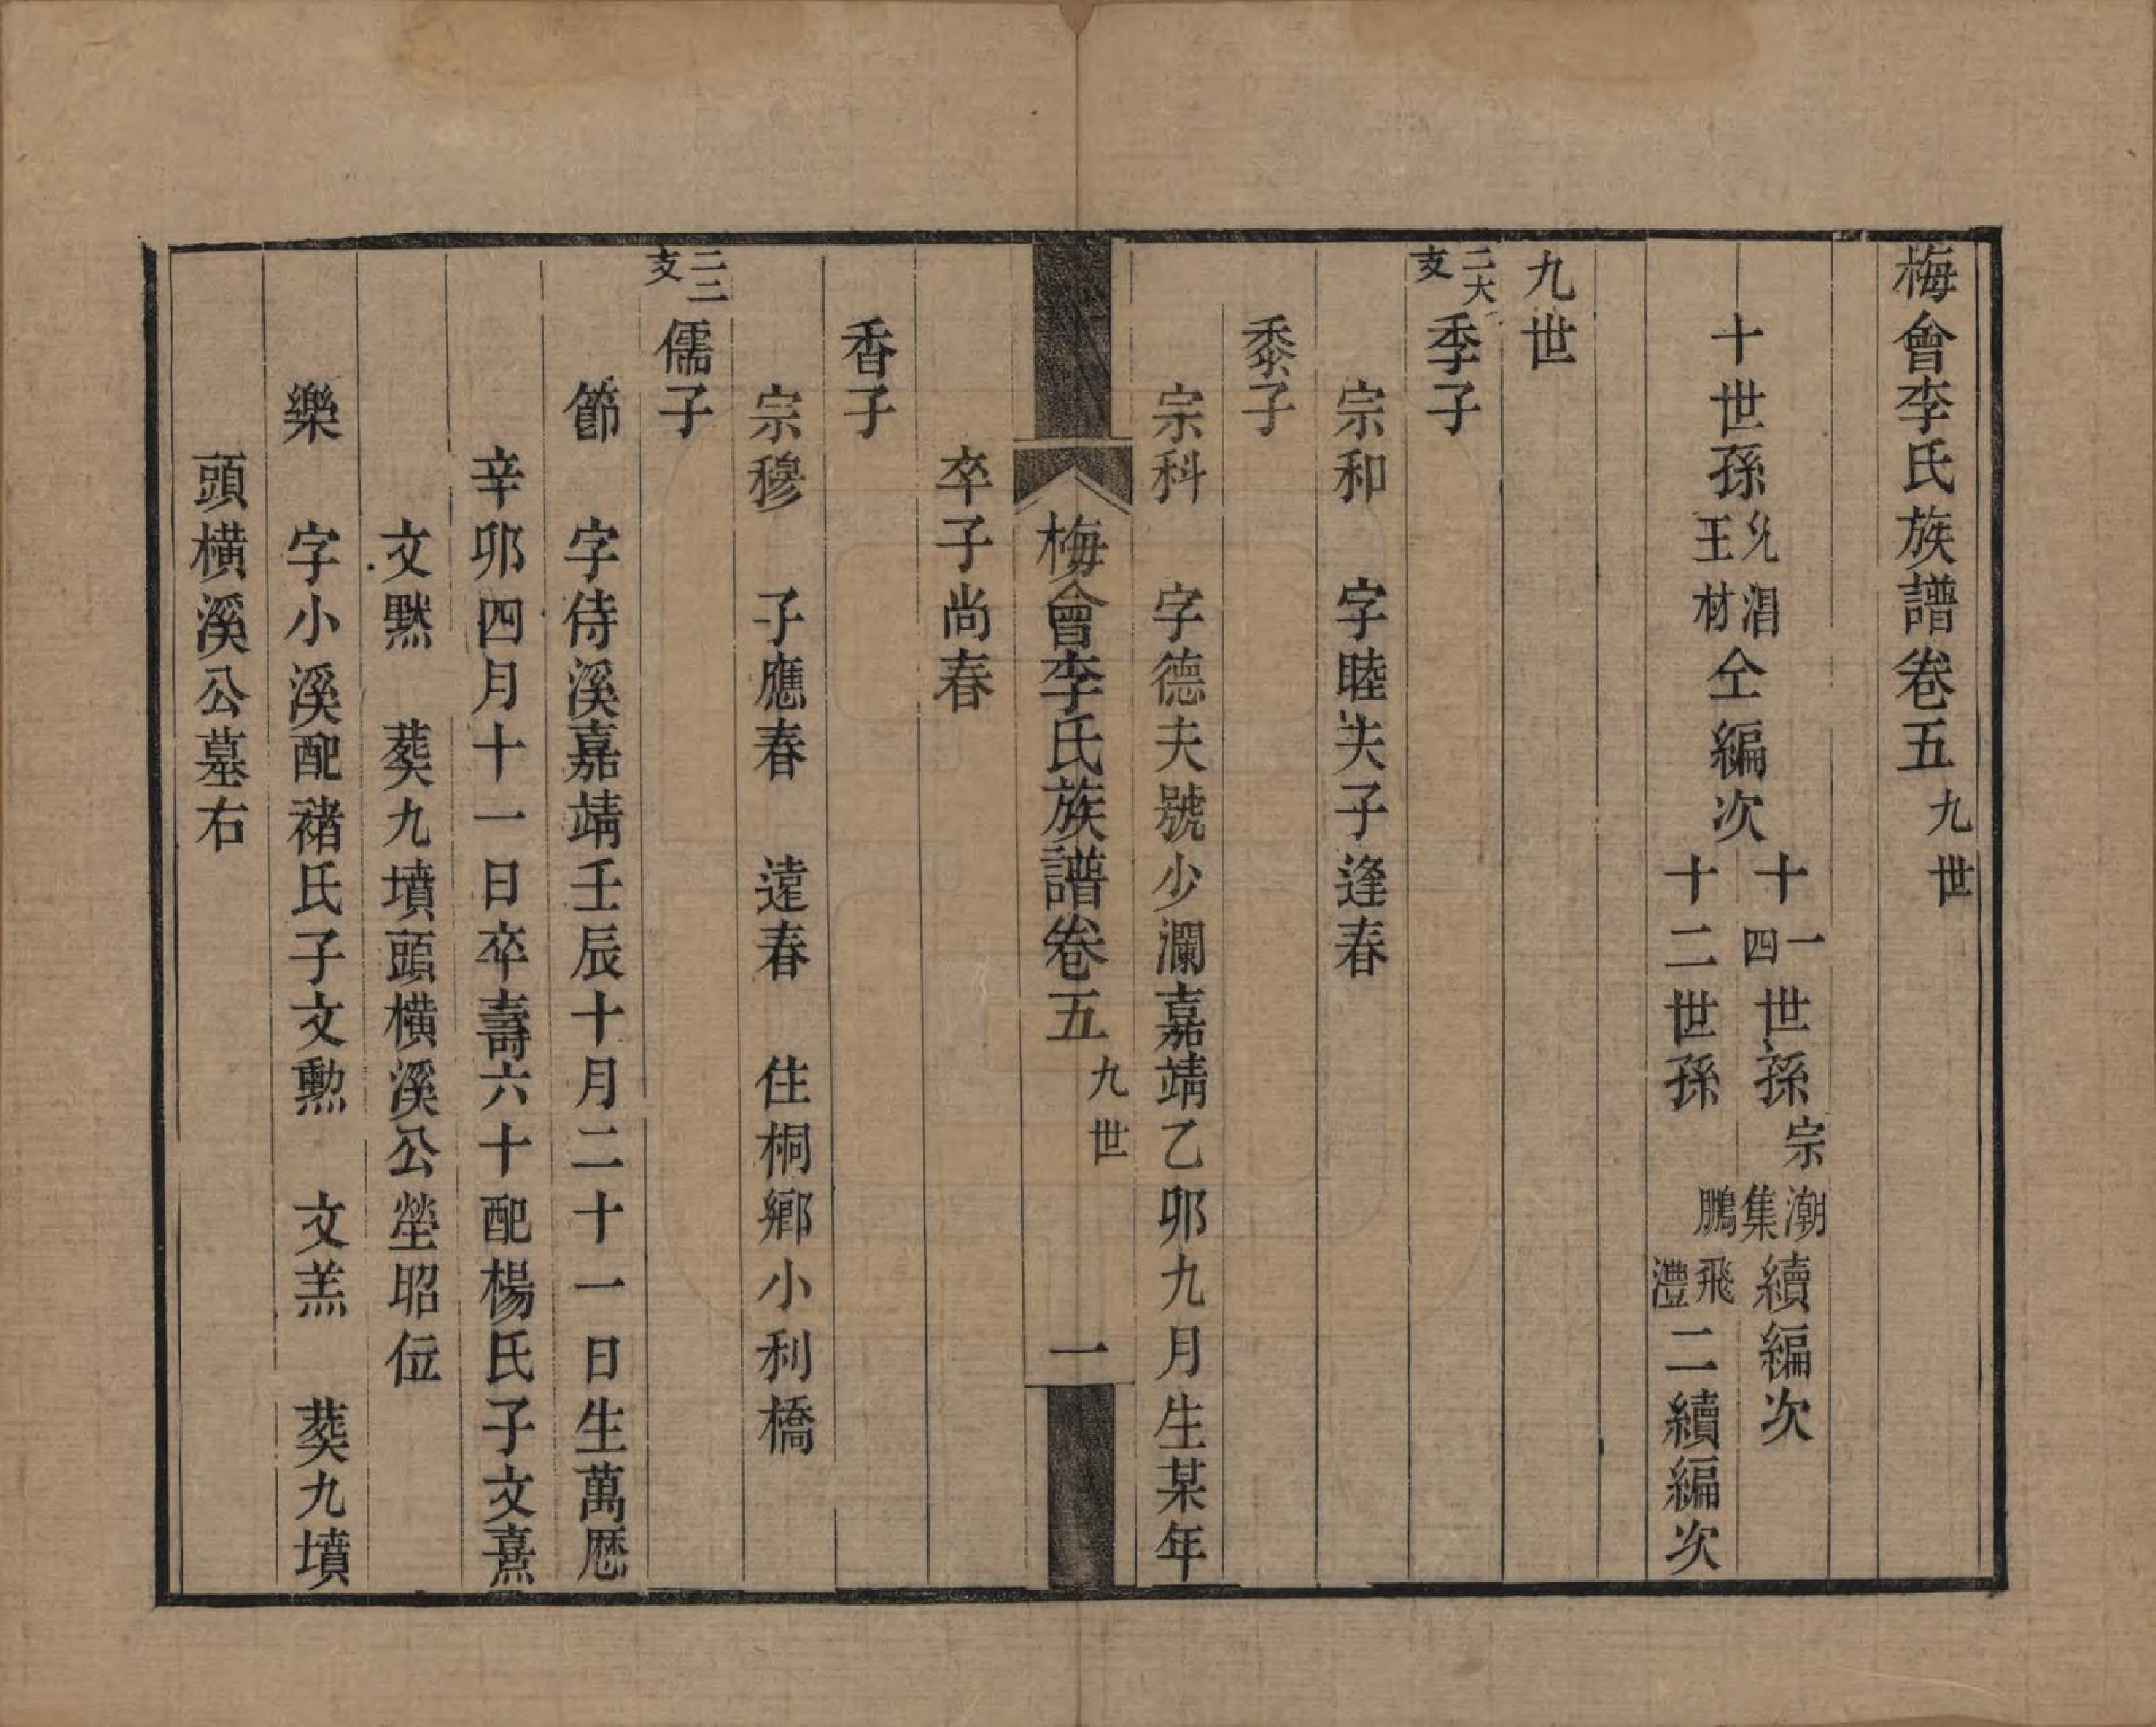 梅會李氏族譜卷五九世
十世孫光淐王材仝編次十一四世孫宗潮集續編次
十二世孫鵬飛灃二續編次
九世
二大支季子
宗和 字睦夫子逢春
黍子
宗科 字德夫號少瀾嘉靖乙卯九月生某年
梅會李氏族譜卷五 九世 一
卒子尚春
香子
宗穆 子應春 遠春 住桐鄉小利橋
二二支儒子
節 字侍溪嘉靖壬辰十月二十一日生萬厯
辛卯四月十一日卒壽六十配楊氏子文熹
文黙 葬九墳頭橫溪公塋昭位
樂 字小溪配褚氏子文勲 文羔 葬九墳
頭橫溪公墓右